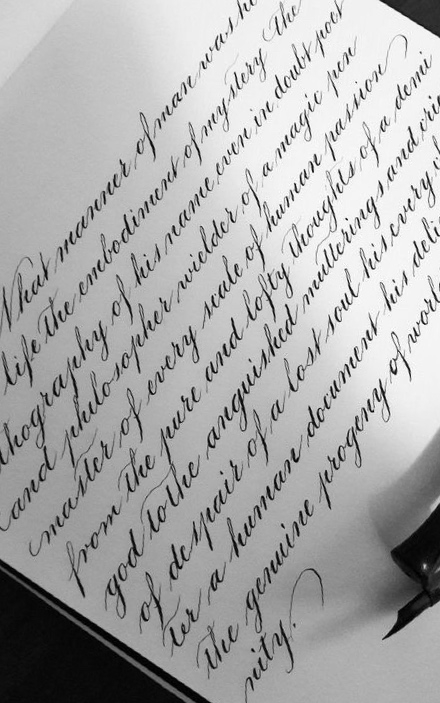 What manner of man was he
life the embodiment of mystery the
thography of his name even in doubt poet
and philosopher wielder of a magic pen
master of every scale of human passion
from the pure and lofty thoughts of a demi
god to the anguished mutterings and crie
of despair of a lost soul his every
ter a human document his deli
the genuine progeny of
nity.